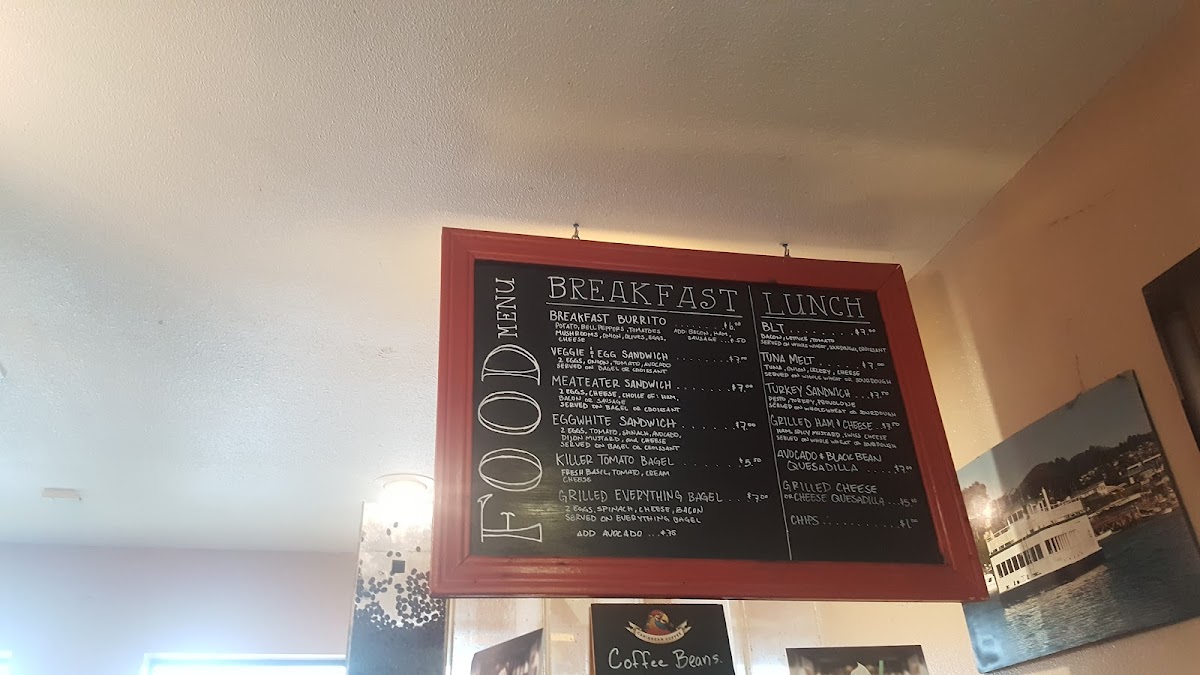 FOOD MENU
BREAKFAST
BREAKFAST BURRITO ........ $6.00
POTATO, BELL PEPPERS, TOMATOES
MUSHROOMS, ONION, OLIVES, EGGS,
CHEESE
ADD BACON, HAM,
SAUSAGE ... $.50
VEGGIE & EGG SANDWICH ........ $7.00
2 EGGS, ONION, TOMATO, AVOCADO
SERVED ON BAGEL OR CROISSANT
MEATEATER SANDWICH ........ $7.00
2 EGGS, CHEESE, CHOICE OF: HAM,
BACON OR SAUSAGE
SERVED ON BAGEL OR CROISSANT
EGGWHITE SANDWICH ........ $7.00
2 EGGS, TOMATO, SPINACH, AVOCADO,
DIJON MUSTARD, AND CHEESE
SERVED ON BAGEL OR CROISSANT
KILLER TOMATO BAGEL ........ $5.50
FRESH BASIL, TOMATO, CREAM
CHEESE
GRILLED EVERYTHING BAGEL .. $7.00
2 EGGS, SPINACH, CHEESE, BACON
SERVED ON EVERYTHING BAGEL
ADD AVOCADO ... $.75
LUNCH
BLT ........ $7.00
BACON, LETTUCE, TOMATO
SERVED ON WHOLE WHEAT, SOURDOUGH, CROISSANT
TUNA MELT ...... $7.00
TUNA, ONION, CELERY, CHEESE
SERVED ON WHOLE WHEAT OR SOURDOUGH
TURKEY SANDWICH ... $7.50
PESTO, TURKEY, PROVOLONE
SERVED ON WHOLE WHEAT OR SOURDOUGH
GRILLED HAM & CHEESE .. $7.50
HAM, SPICY MUSTARD, SWISS CHEESE
SERVED ON WHOLE WHEAT OR SOURDOUGH
AVOCADO & BLACK BEAN
QUESADILLA ..... $7.00
GRILLED CHEESE
OR CHEESE QUESADILLA ... $5.50
CHIPS ............ $1.00
CARIBBEAN COFFEE
Coffee Beans